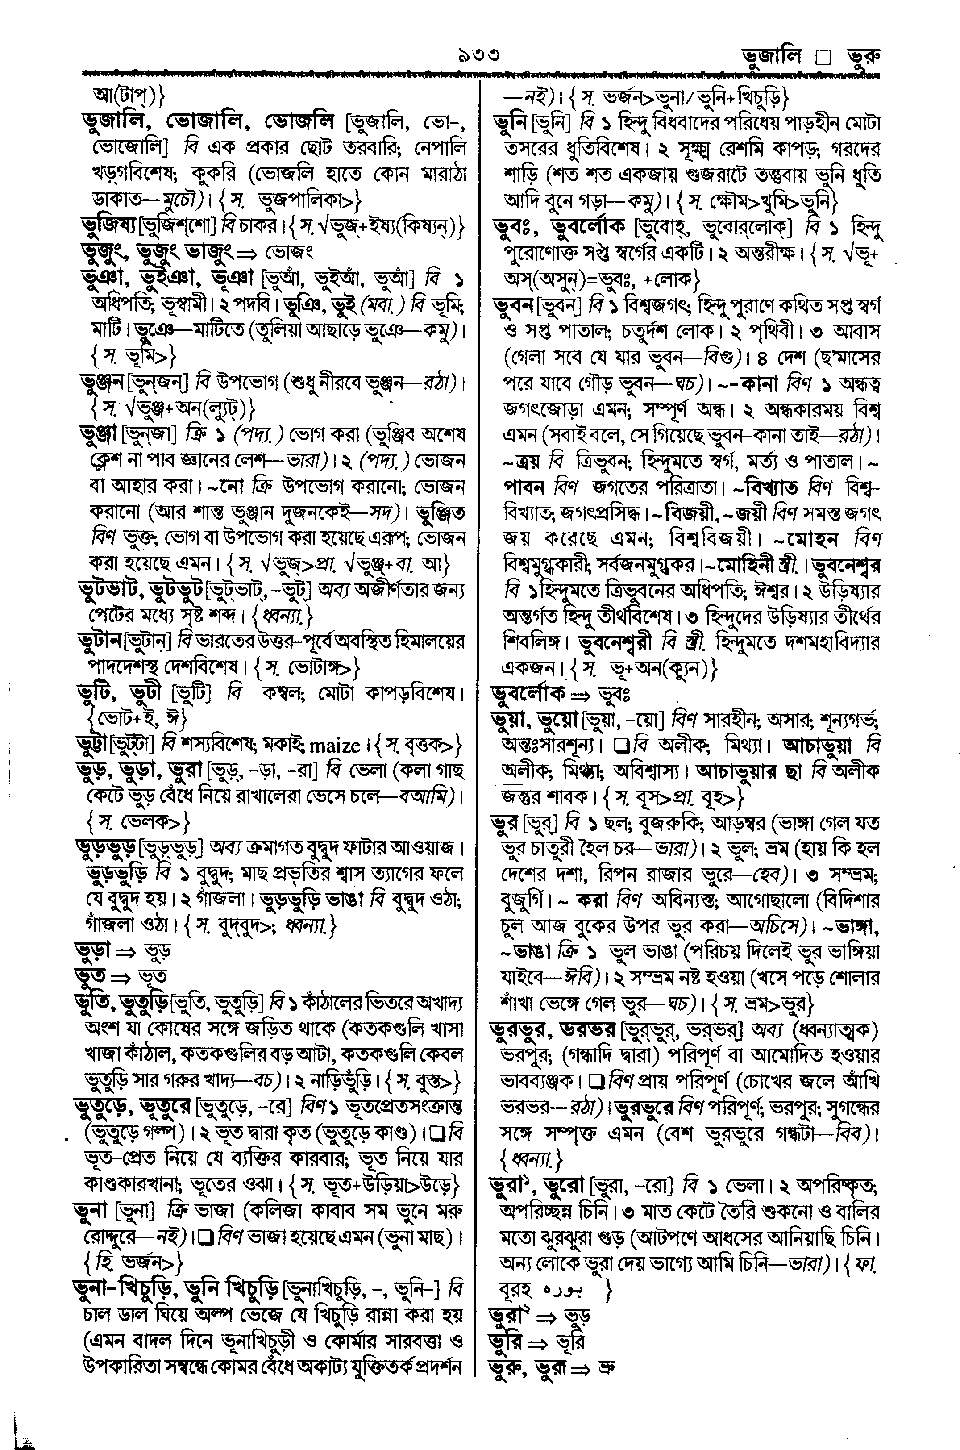 ৯৩৩
ভুজালি □ ভুরু
আ(টাপ্)}
ভুজালি, ভোজালি, ভোজলি [ভুজালি, ভো-,
ভোজোলি] বি এক প্রকার ছোট তরবারি; নেপালি
খড়গবিশেষ; কুকরি (ভোজলি হাতে কোন মারাঠা
ডাকাত—মুচৌ)। {স. ভুজপালিকা>}
ভুজিষ্য [ভুজিশ্‌শো] বি চাকর। {স. √ভুজ্+ইষ্য(কিষ্যন্)}
ভুজুং, ভুজুং ভাজুং ⇒ ভোজং
ভুঞা, ভুইঞা, ভূঞা [ভুআঁ, ভুইআঁ, ভূআঁ] বি ১
অধিপতি; ভূস্বামী। ২ পদবি। ভুঞি, ভুই (মবা.) বি ভূমি;
মাটি। ভুঞে—মাটিতে (তুলিয়া আছাড়ে ভূঞে—কমু)।
{স. ভূমি>}
ভুঞ্জন [ভুন্‌জন্] বি উপভোগ (শুধু নীরবে ভুঞ্জন—রঠা)।
{স. √ভুঞ্জ্+অন(ল্যুট্)}
ভুঞ্জা [ভুন্‌জা] ক্রি ১ (পদ্য.) ভোগ করা (ভুঞ্জিব অশেষ
ক্লেশ না পাব জ্ঞানের লেশ—ভারা)। ২ (পদ্য.) ভোজন
বা আহার করা। ~নো ক্রি উপভোগ করানো; ভোজন
করানো (আর শান্ত ভুঞ্জান দুজনকেই—সদ)। ভুঞ্জিত
বিণ ভুক্ত; ভোগ বা উপভোগ করা হয়েছে এরূপ; ভোজন
করা হয়েছে এমন। {স. √ভুজ্>প্রা. √ভুঞ্জ্+বা. আ}
ভুটভাট, ভুটভুট [ভুট্‌ভাট্, -ভুট্] অব্য অজীর্ণতার জন্য
পেটের মধ্যে সৃষ্ট শব্দ। {ধ্বন্যা.}
ভুটান [ভুটান্] বি ভারতের উত্তর-পূর্বে অবস্থিত হিমালয়ের
পাদদেশস্থ দেশবিশেষ। {স. ভোটাঙ্গ>}
ভুটি, ভুটী [ভুটি] বি কম্বল; মোটা কাপড়বিশেষ।
{ভোট+ই, ঈ}
ভুট্টা [ভুট্‌টা] বি শস্যবিশেষ; মকাই; maize। {স. বৃত্তক>}
ভুড়, ভুড়া, ভুরা [ভুড়্, -ড়া, -রা] বি ভেলা (কলা গাছ
কেটে ভুড় বেঁধে নিয়ে রাখালেরা ভেসে চলে—বআমি)।
{স. ভেলক>}
ভুড়ভুড় [ভুড়্‌ভুড়্] অব্য ক্রমাগত বুদ্বুদ ফাটার আওয়াজ।
ভুড়ভুড়ি বি ১ বুদ্বুদ; মাছ প্রভৃতির শ্বাস ত্যাগের ফলে
যে বুদ্বুদ হয়। ২ গাঁজলা। ভুড়ভুড়ি ভাঙা বি বুদ্বুদ ওঠা;
গাঁজলা ওঠা। {স. বুদ্‌বুদ্>; ধ্বন্যা.}
ভুড়া ⇒ ভুড়
ভুত ⇒ ভূত
ভুতি, ভুতুড়ি [ভুতি, ভুতুড়ি] বি ১ কাঁঠালের ভিতরে অখাদ্য
অংশ যা কোষের সঙ্গে জড়িত থাকে (কতকগুলি খাসা
খাজা কাঁঠাল, কতকগুলির বড় আটা, কতকগুলি কেবল
ভুতুড়ি সার গরুর খাদ্য—বচ)। ২ নাড়িভুঁড়ি। {স. বুস্ত>}
ভুতুড়ে, ভূতুরে [ভুতুড়ে, -রে] বিণ ১ ভূতপ্রেতসংক্রান্ত
(ভুতুড়ে গল্প)। ২ ভূত দ্বারা কৃত (ভুতুড়ে কাণ্ড)। □ বি
ভূত-প্রেত নিয়ে যে ব্যক্তির কারবার; ভূত নিয়ে যার
কাণ্ডকারখানা; ভূতের ওঝা। {স. ভূত+উড়িয়া>উড়ে}
ভুনা [ভুনা] ক্রি ভাজা (কলিজা কাবাব সম ভুনে মরু
রোদ্দুরে—নই)। □ বিণ ভাজা হয়েছে এমন (ভুনা মাছ)।
{হি. ভর্জন>}
ভুনা-খিচুড়ি, ভুনি খিচুড়ি [ভুনাখিচুড়ি, -, ভুনি-] বি
চাল ডাল ঘিয়ে অল্প ভেজে যে খিচুড়ি রান্না করা হয়
(এমন বাদল দিনে ভূনাখিচুড়ী ও কোর্মার সারবত্তা ও
উপকারিতা সম্বন্ধে কোমর বেঁধে অকাট্য যুক্তিতর্ক প্রদর্শন
—নই)। {স. ভর্জন>ভুনা/ ভুনি+খিচুড়ি}
ভুনি [ভুনি] বি ১ হিন্দু বিধবাদের পরিধেয় পাড়হীন মোটা
তসরের ধুতিবিশেষ। ২ সূক্ষ্ম রেশমি কাপড়; গরদের
শাড়ি (শত শত একজায় গুজরাটে তন্তুবায় ভুনি ধুতি
আদি বুনে গড়া—কমু)। {স. ক্ষৌম>খুমি>ভুনি}
ভুবঃ, ভুবর্লোক [ভুবোহ্, ভুবোর্‌লোক্] বি ১ হিন্দু
পুরোণোক্ত সপ্ত স্বর্গের একটি। ২ অন্তরীক্ষ। {স. √ভূ+
অস্(অসুন্)=ভুবঃ, +লোক}
ভুবন [ভুবন্] বি ১ বিশ্বজগৎ; হিন্দু পুরাণে কথিত সপ্ত স্বর্গ
ও সপ্ত পাতাল; চতুর্দশ লোক। ২ পৃথিবী। ৩ আবাস
(গেলা সবে যে যার ভুবন—বিগু)। ৪ দেশ (ছ'মাসের
পরে যাবে গৌড় ভুবন—ঘচ)। ~-কানা বিণ ১ অন্ধত্ব
জগৎজোড়া এমন; সম্পূর্ণ অন্ধ। ২ অন্ধকারময় বিশ্ব
এমন (সবাই বলে, সে গিয়েছে ভুবন-কানা তাই—রঠা)।
~ত্রয় বি ত্রিভুবন; হিন্দুমতে স্বর্গ, মর্ত্য ও পাতাল। ~
পাবন বিণ জগতের পরিত্রাতা। ~বিখ্যাত বিণ বিশ্ব-
বিখ্যাত; জগৎপ্রসিদ্ধ। ~বিজয়ী, ~জয়ী বিণ সমস্ত জগৎ
জয় করেছে এমন; বিশ্ববিজয়ী। ~মোহন বিণ
বিশ্বমুগ্ধকারী; সর্বজনমুগ্ধকর। ~মোহিনী স্ত্রী.। ভুবনেশ্বর
বি ১ হিন্দুমতে ত্রিভুবনের অধিপতি; ঈশ্বর। ২ উড়িষ্যার
অন্তর্গত হিন্দু তীর্থবিশেষ। ৩ হিন্দুদের উড়িষ্যার তীর্থের
শিবলিঙ্গ। ভুবনেশ্বরী বি স্ত্রী. হিন্দুমতে দশমহাবিদ্যার
একজন। {স. ভূ+অন(ক্যুন)}
ভুবর্লোক ⇒ ভুবঃ
ভুয়া, ভুয়ো [ভুয়া, -য়ো] বিণ সারহীন; অসার; শূন্যগর্ভ;
অন্তঃসারশূন্য। □ বি অলীক; মিথ্যা। আচাভুয়া বি
অলীক; মিথ্যা; অবিশ্বাস্য। আচাভুয়ার ছা বি অলীক
জন্তুর শাবক। {স. বৃস>প্রা. বূহ>}
ভুর [ভুর্] বি ১ ছল; বুজরুকি; আড়ম্বর (ভাঙ্গা গেল যত
ভুর চাতুরী হৈল চর—ভারা)। ২ ভূল; ভ্রম (হায় কি হল
দেশের দশা, রিপন রাজার ভুরে—হেব)। ৩ সম্ভ্রম;
বুজুর্গি। ~ করা বিণ অবিন্যস্ত; আগোছালো (বিদিশার
চুল আজ বুকের উপর ভুর করা—অচিসে)। ~ভাঙ্গা,
~ভাঙা ক্রি ১ ভুল ভাঙা (পরিচয় দিলেই ভুর ভাঙ্গিয়া
যাইবে—ঈবি)। ২ সম্ভ্রম নষ্ট হওয়া (খসে পড়ে শোলার
শাঁখা ভেঙ্গে গেল ভুর—ঘচ)। {স. ভ্রম>ভুর}
ভুরভুর, ভরভর [ভুর্‌ভুর্, ভর্‌ভর্] অব্য (ধ্বন্যাত্মক)
ভরপুর; (গন্ধাদি দ্বারা) পরিপূর্ণ বা আমোদিত হওয়ার
ভাবব্যঞ্জক। □ বিণ প্রায় পরিপূর্ণ (চোখের জলে আঁখি
ভরভর—রঠা)। ভুরভুরে বিণ পরিপূর্ণ; ভরপুর; সুগন্ধের
সঙ্গে সম্পৃক্ত এমন (বেশ ভুরভুরে গন্ধটা—বিব)।
{ধ্বন্যা.}
ভুরা১, ভুরো [ভুরা, -রো] বি ১ ভেলা। ২ অপরিষ্কৃত;
অপরিচ্ছন্ন চিনি। ৩ মাত কেটে তৈরি শুকনো ও বালির
মতো ঝুরঝুরা গুড় (আটপণে আধসের আনিয়াছি চিনি।
অন্য লোকে ভুরা দেয় ভাগ্যে আমি চিনি—ভারা)। {ফা.
বূরহ بوره }
ভুরা২ ⇒ ভুড়
ভুরি ⇒ ভূরি
ভুরু, ভুরা ⇒ ভ্রু